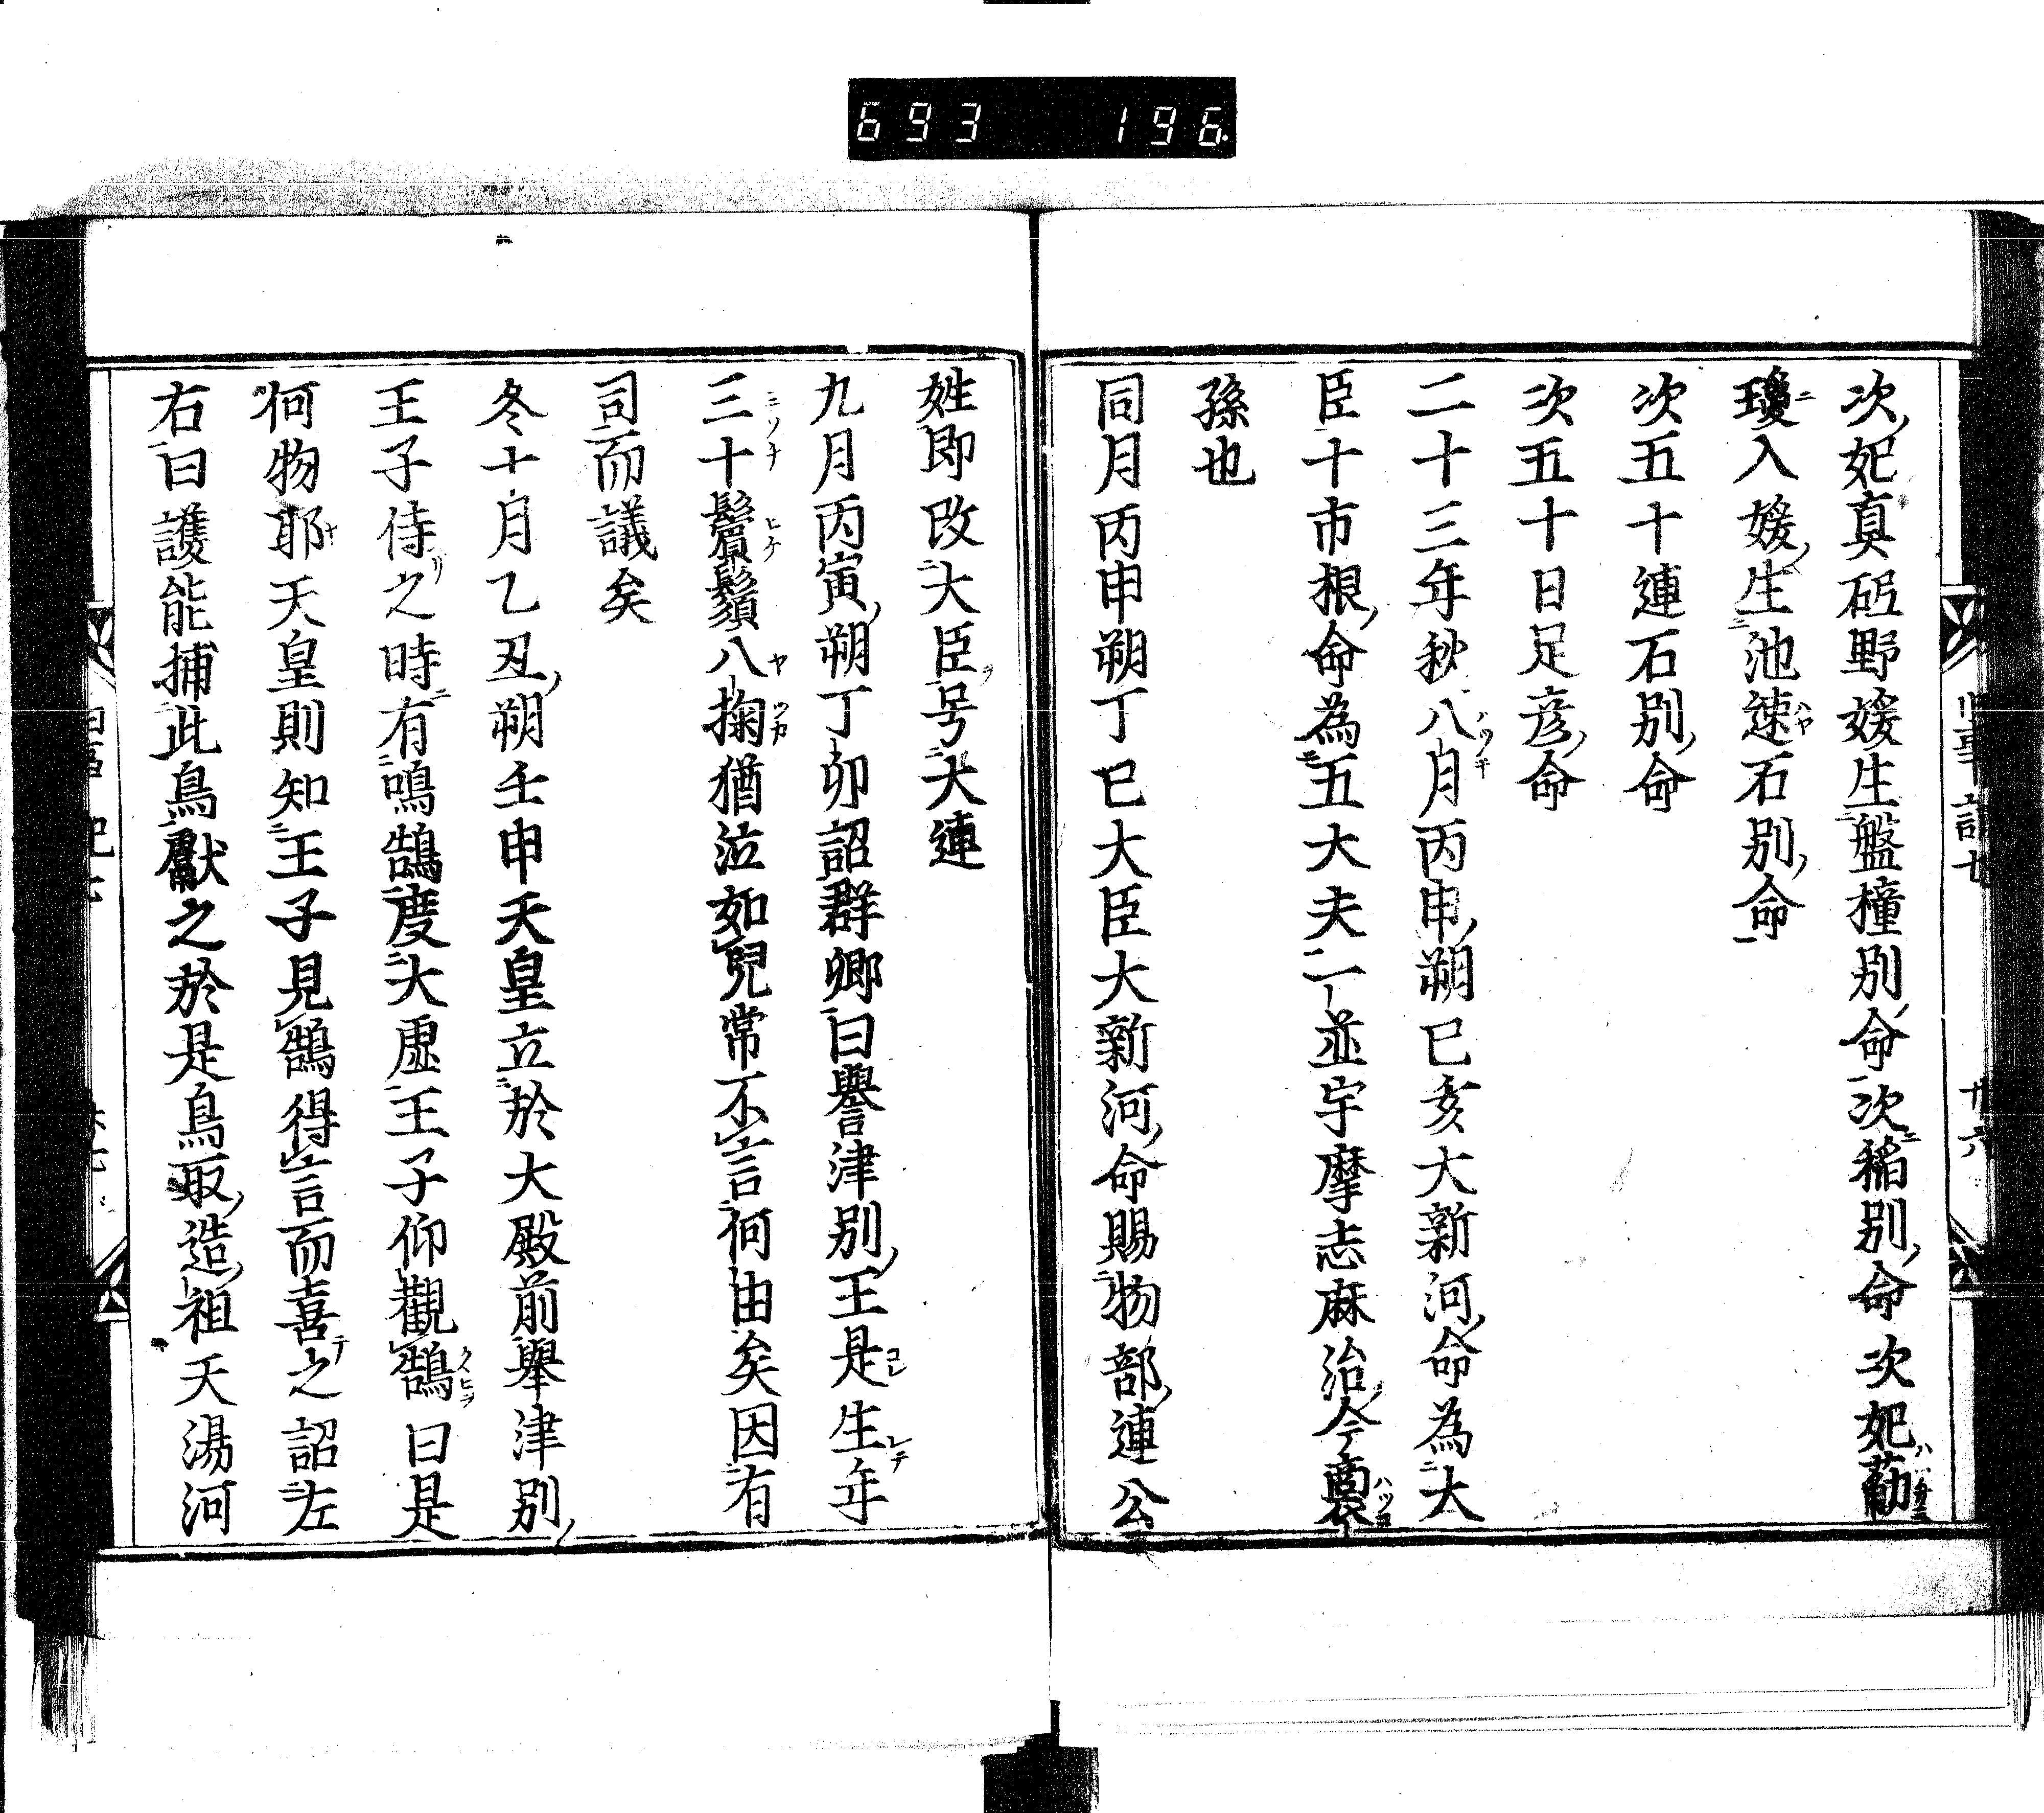 693 196
次妃真砥野媛生盤撞別命次稲別命次妃薊
瓊入媛生池速石別命
次五十連石別命
次五十日足彦命
二十三年秋八月丙申朔已亥大新河命為大
臣十市根命為五大夫一並宇摩志麻治今裔
孫也
同月丙申朔丁已大臣大新河命賜物部連公
姓即改大臣号大連
九月丙寅朔丁卯詔群卿曰譽津別王是生年
三十鬢鬚八掬猶泣如兒常不言何由矣因有
司而議矣
冬十月乙丑朔壬申天皇立於大殿前舉津別
王子侍之時有鳴鵠度大虛王子仰觀鵠曰是
何物耶天皇則知王子見鵠得言而喜之詔左
右曰護能捕此鳥獻之於是鳥取造祖天湯河